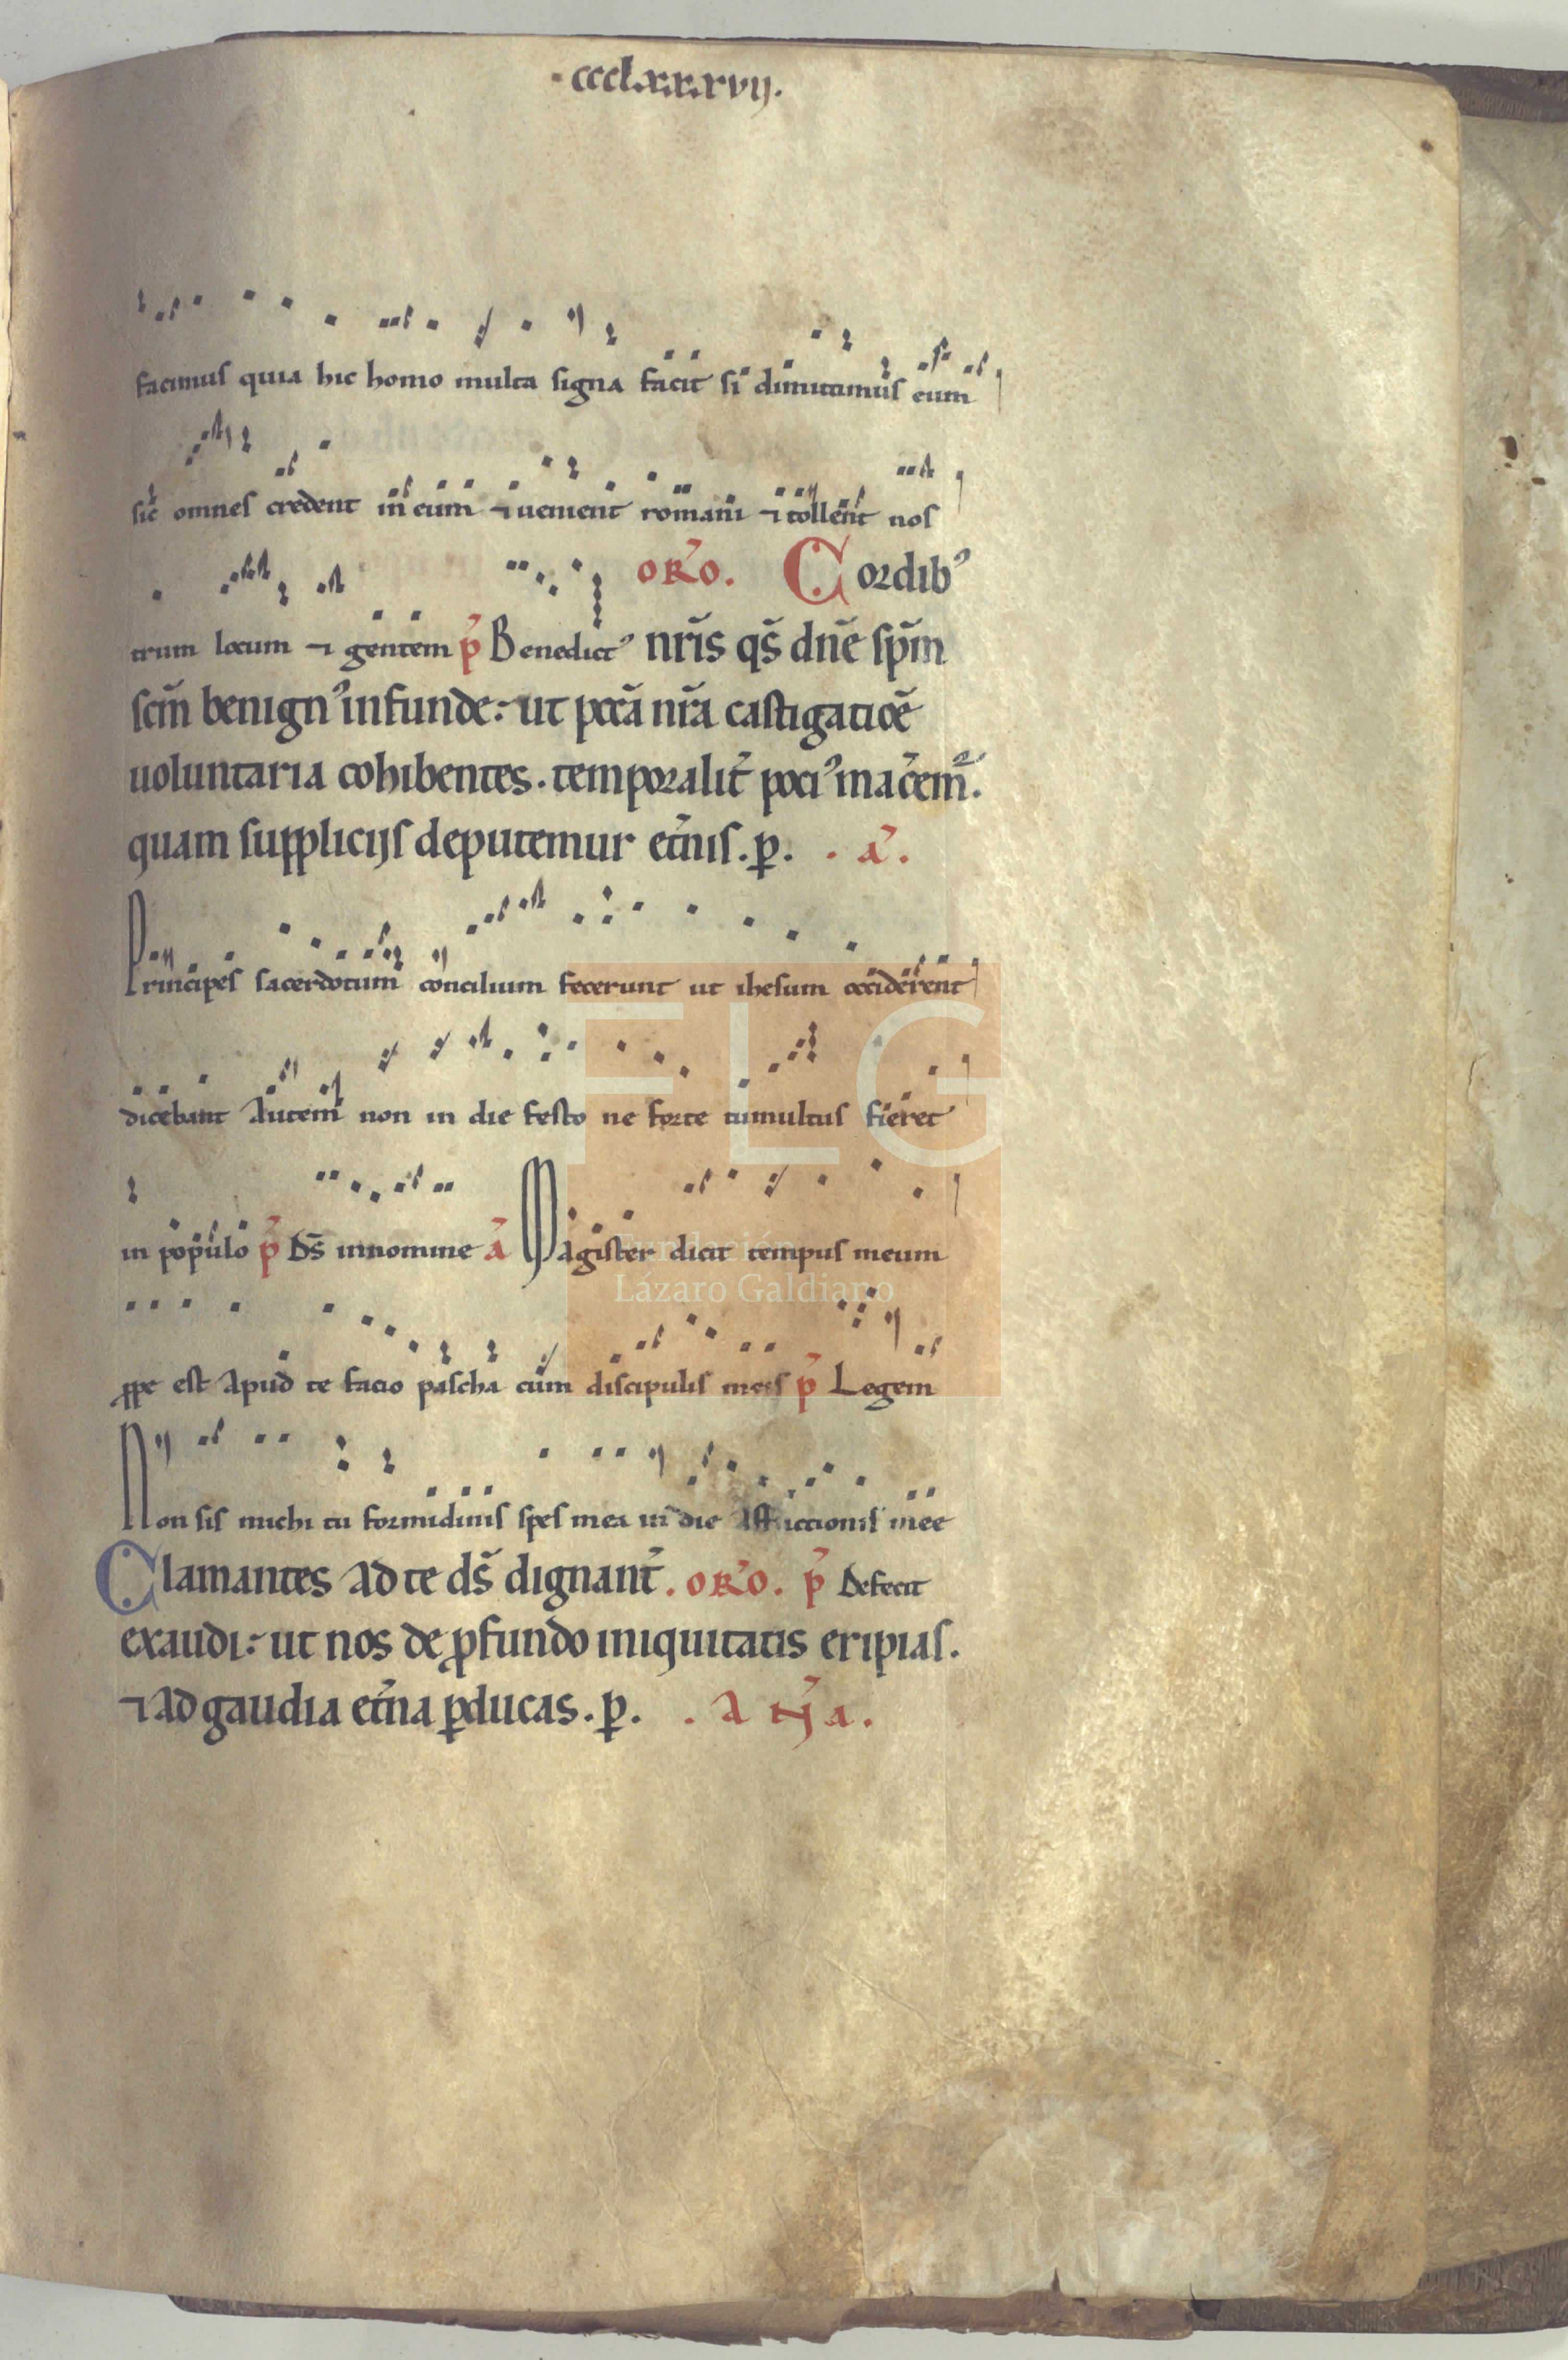 ·cccl.x.x.x.vij.
facimus quia hic homo multa signa facit si dimittimus eum
sic̄ omnes credent in eum ⁊ uenient romani ⁊ tollent nos
oRõ. Cordibꝰ
trum locum ⁊ gentem p̃ Benedictꝰ nr̃is qs̃ dñe sp̃m
sc̃m benignꝰ infunde: ut pccã nr̃a castigatiõe
uoluntaria cohibentes. temporalit̃ pociꝰ macẽm̃.
quam supplicijs deputemur et̃nis. ꝑ. . ã.
Principes sacerdotum concilium fecerunt ut ihesum occiderent
dicebant Autem non in die festo ne forte tumultus fieret
in populo p̃ Ds̃ in nomine ã Magister dicit tempus meum
ꝓpe est Apud te facio pascha cum discipulis meis p̃ Legem
Non sis michi tu formidinis spes mea in die Affliccionis mee
Clamantes Ad te ds̃ dignant̃. oRõ. p̃ Defecit
exaudi: ut nos de ꝓfundo iniquitatis eripias.
⁊ Ad gaudia et̃na ꝑducas. ꝑ. . A ñ a.
FLG
Fundación
Lázaro Galdiano